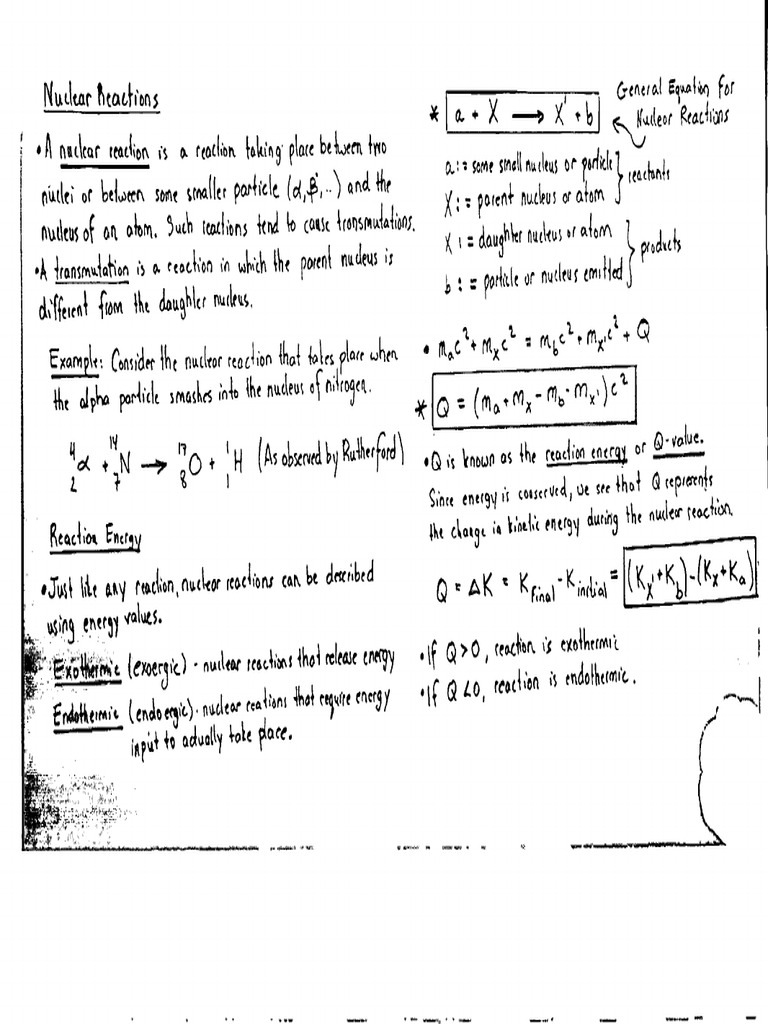 Nuclear Reactions
• A nuclear reaction is a reaction taking place between two
nuclei or between some smaller particle (α, β, ..) and the
nucleus of an atom. Such reactions tend to cause transmutations.
• A transmutation is a reaction in which the parent nucleus is
different from the daughter nucleus.
Example: Consider the nuclear reaction that takes place when
the alpha particle smashes into the nucleus of nitrogen.
⁴₂α + ¹⁴₇N → ¹⁷₈O + ¹₁H (As observed by Rutherford)
Reaction Energy
• Just like any reaction, nuclear reactions can be described
using energy values.
Exothermic (exoergic) - nuclear reactions that release energy
Endothermic (endoergic) - nuclear reations that require energy
input to actually take place.
* a + X → X' + b
General Equation for
Nuclear Reactions
a := some small nucleus or particle
X := parent nucleus or atom
} reactants
X' := daughter nucleus or atom
b := particle or nucleus emitted
} products
• mₐc² + mₓc² = m_bc² + m_X'c² + Q
* Q = (mₐ + mₓ - m_b - m_X')c²
• Q is known as the reaction energy or Q-value.
Since energy is conserved, we see that Q represents
the change in kinetic energy during the nuclear reaction.
Q = ΔK = K_final - K_initial = (K_X' + K_b) - (K_X + K_a)
• If Q > 0, reaction is exothermic
• If Q < 0, reaction is endothermic.